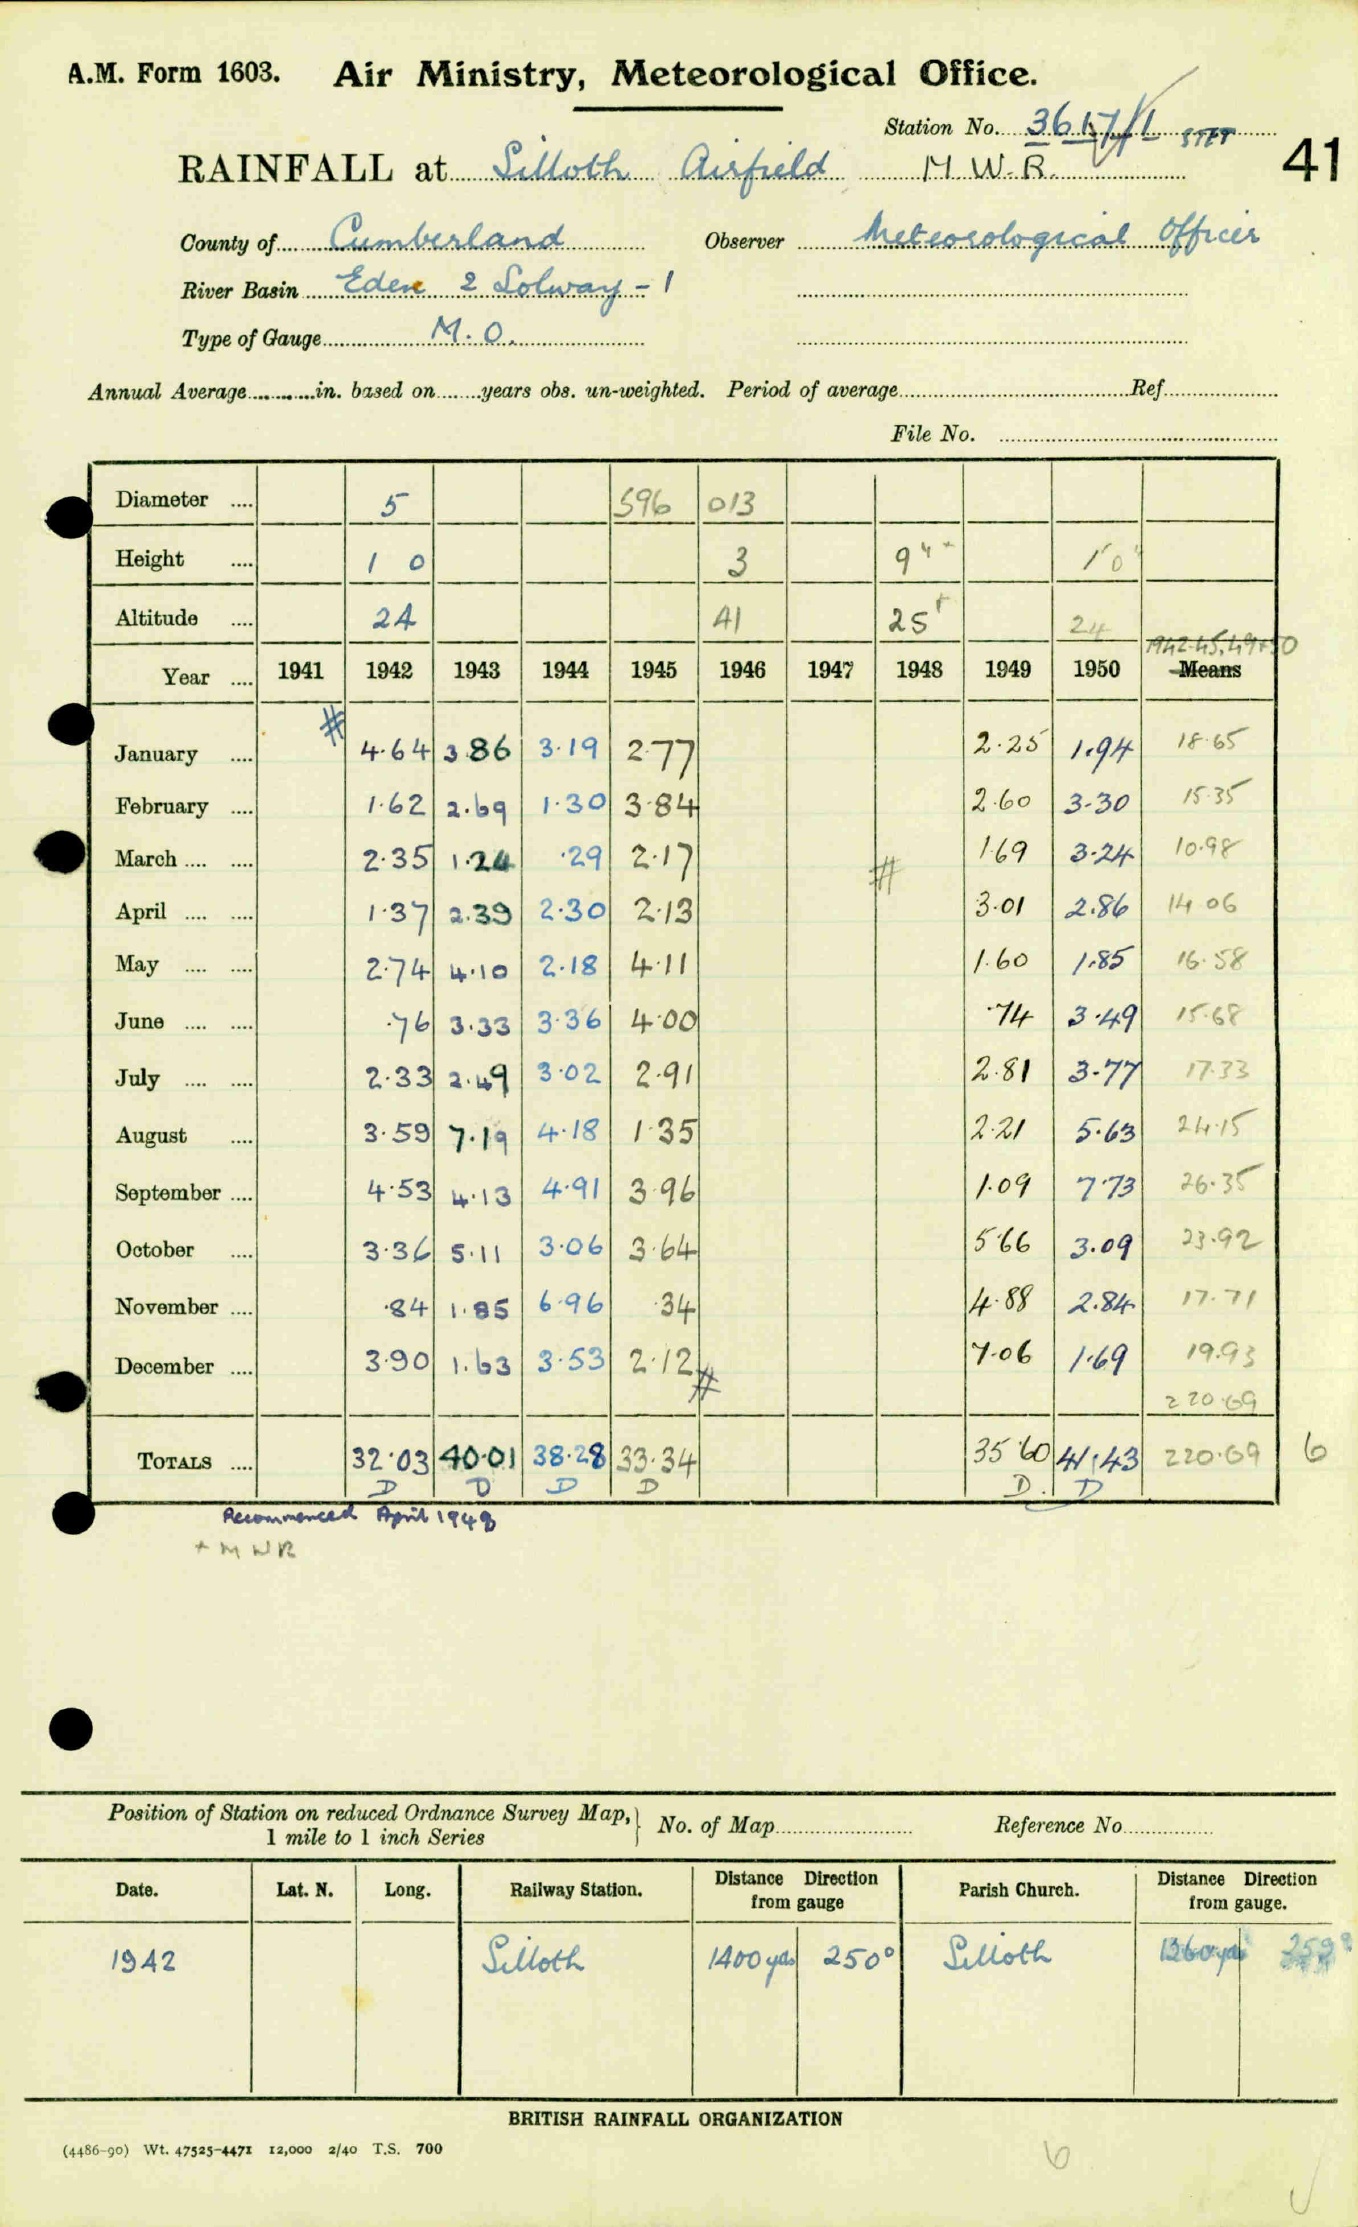 A.M. Form 1603. Air Ministry, Meteorological Office.
Station No. 3617/1 STET
41
RAINFALL at Silloth Airfield M.W.R.
County of Cumberland Observer Meteorological Officer
River Basin Eden 2 Solway - 1
Type of Gauge M.O.
Annual Average in. based on years obs. un-weighted. Period of average Ref.
File No.
Diameter 5 596 013
Height 1 0 3 9" + 1'0"
Altitude 24 41 25 + 24
1942-45, 49+50
Year 1941 1942 1943 1944 1945 1946 1947 1948 1949 1950 Means
January # 4.64 3.86 3.19 2.77 2.25 1.94 18.65
February 1.62 2.69 1.30 3.84 2.60 3.30 15.35
March 2.35 1.24 .29 2.17 # 1.69 3.24 10.98
April 1.37 2.39 2.30 2.13 3.01 2.86 14 06
May 2.74 4.10 2.18 4.11 1.60 1.85 16.58
June .76 3.33 3.36 4.00 .74 3.49 15.68
July 2.33 2.49 3.02 2.91 2.81 3.77 17.33
August 3.59 7.19 4.18 1.35 2.21 5.63 24.15
September 4.53 4.13 4.91 3.96 1.09 7.73 26.35
October 3.36 5.11 3.06 3.64 5.66 3.09 23.92
November .84 1.85 6.96 .34 4.88 2.84 17.71
December 3.90 1.63 3.53 2.12 # 7.06 1.69 19.93
220.69
TOTALS 32.03 40.01 38.28 33.34 35.60 41.43 220.69 6
D D D D D. D
Recommenced April 1948
+ M W R
Position of Station on reduced Ordnance Survey Map, No. of Map Reference No
1 mile to 1 inch Series
Date. Lat. N. Long. Railway Station. Distance Direction from gauge Parish Church. Distance Direction from gauge.
1942 Silloth 1400 yds 250° Silloth 1360 yds
BRITISH RAINFALL ORGANIZATION
(4486-90) Wt. 47525-4471 12,000 2/40 T.S. 700
6